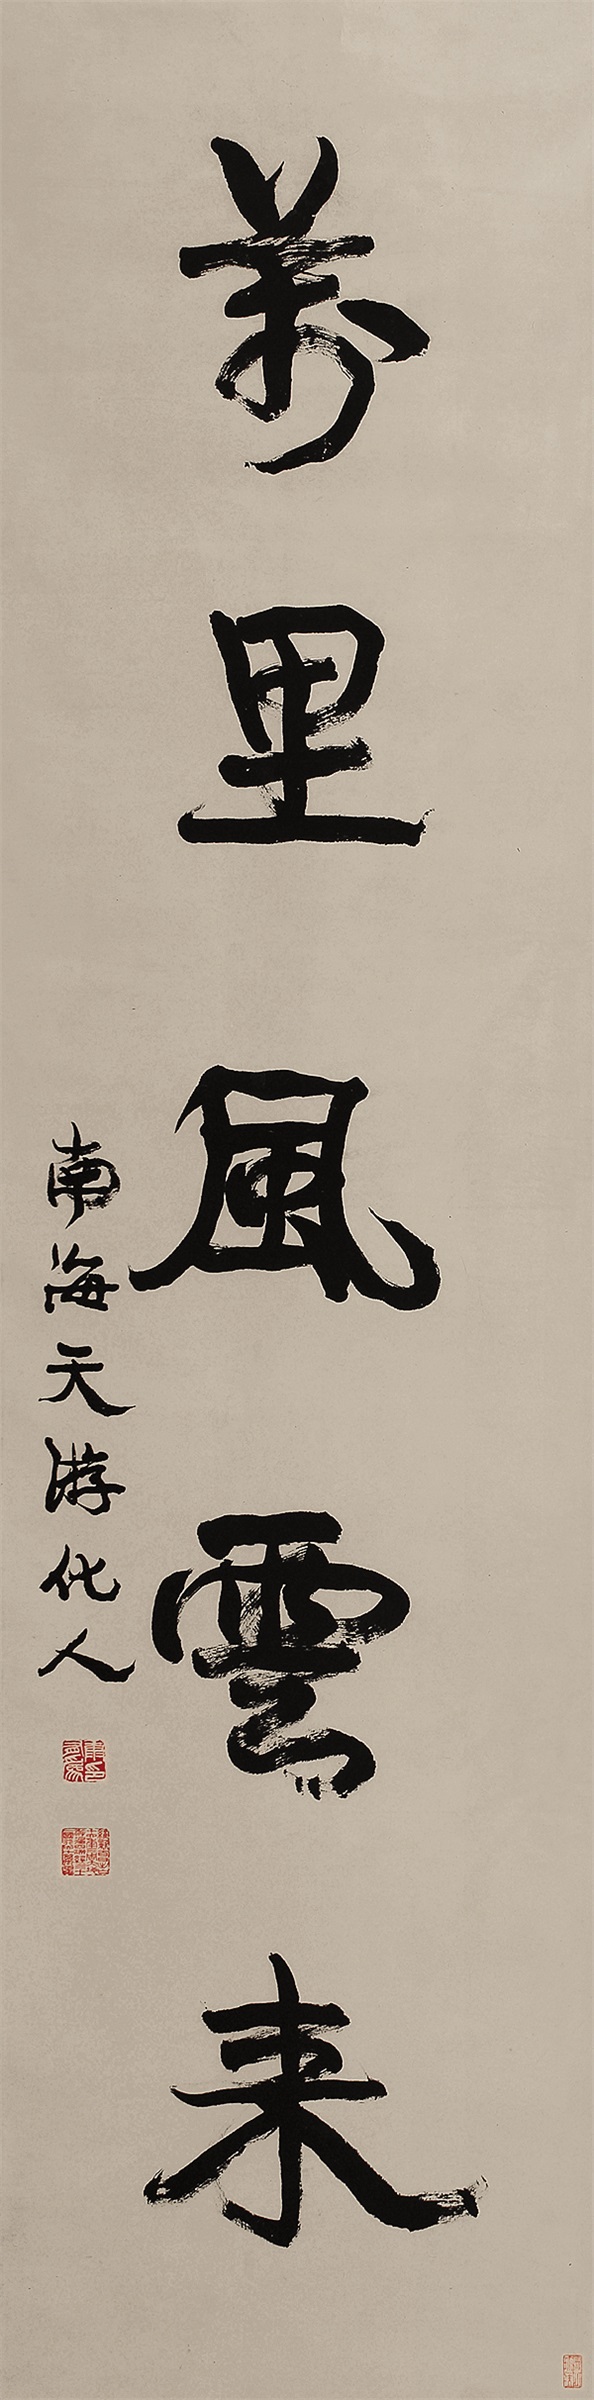 萬里風雲来
南海天游化人